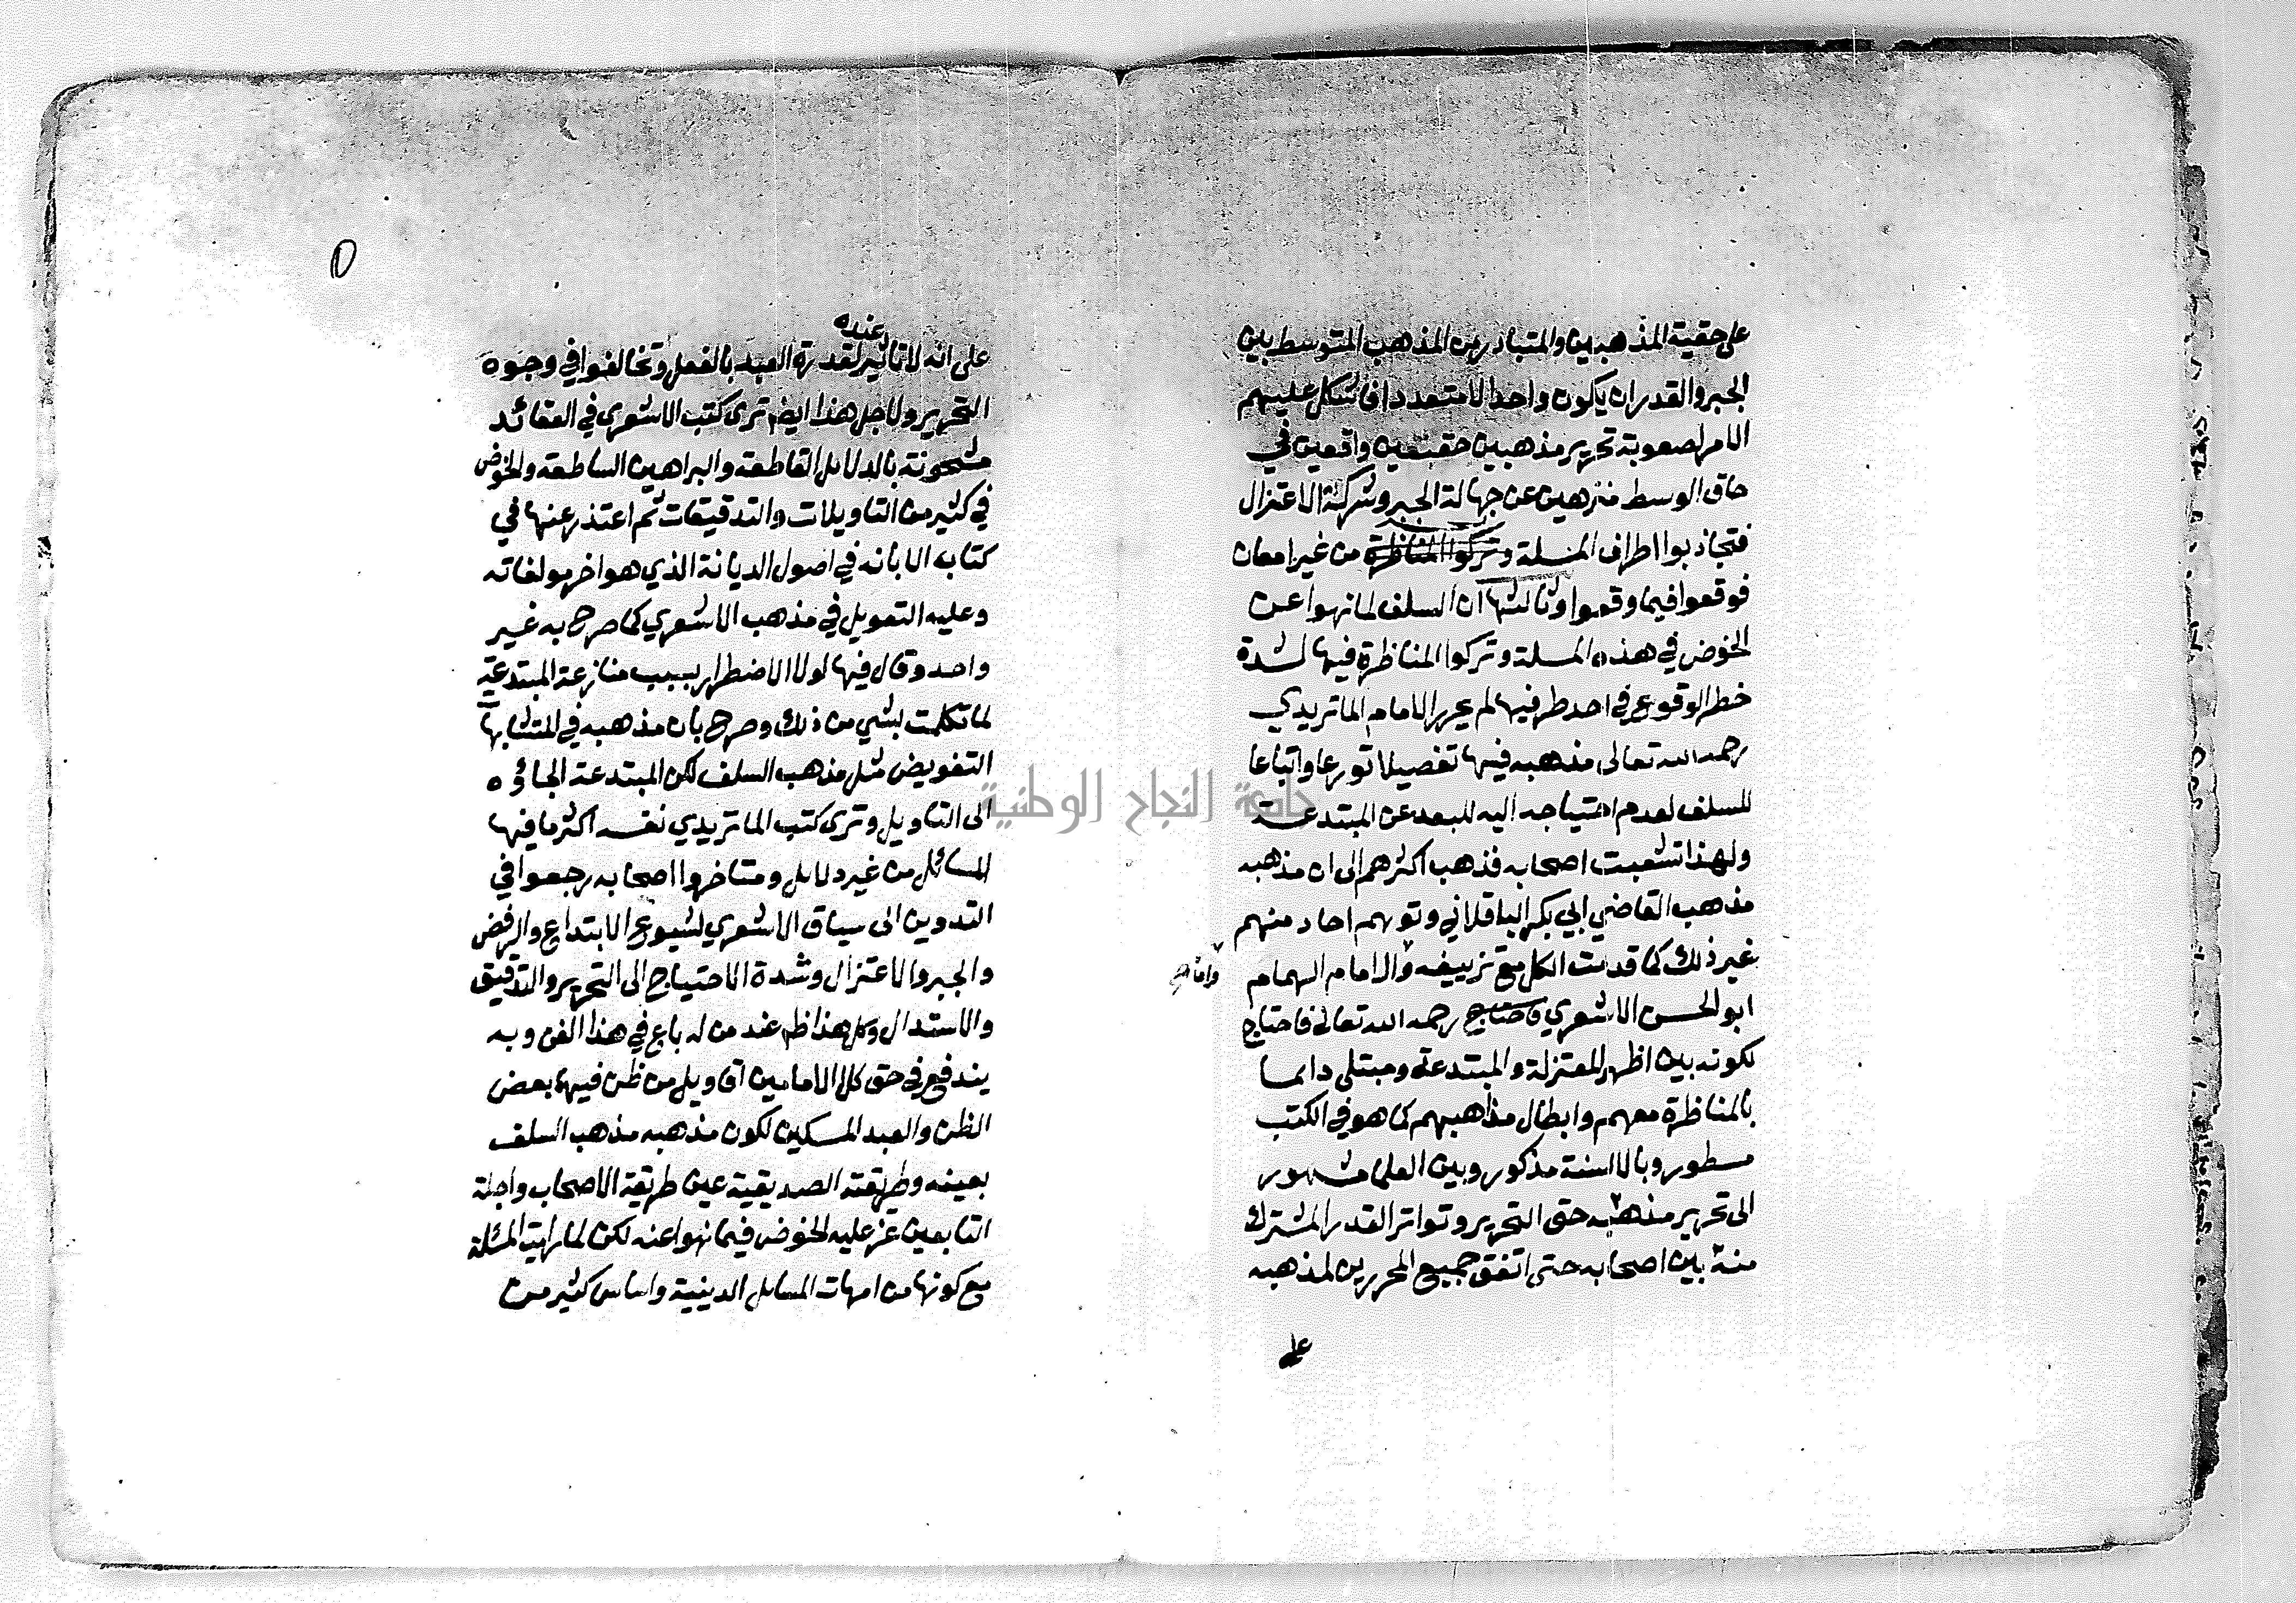 على حقية المذهبين والمتبادر من المذهب المتوسط بين
الجبر والقدر ان يكون واحدا لا متعددا فاشكل عليهم
الامر لصعوبة تحرير مذهبين حقيقيين واقعين في
حاق الوسط منزهين عن جهالة الجبر وشركة الاعتزال
فتجاذبوا اطراف المسلة وتركوا المناظرة من غير امعان
فوقعوا فيما وقعوا وثالثها ان السلف لما نهوا عن
الخوض في هذه المسلة وتركوا المناظرة فيها لشدة
خطر الوقوع في احد طرفيها لم يحرر الامام الماتريدي
رحمه الله تعالى مذهبه فيها تفصيلا تورعا واتباعا
للسلف لعدم احتياجه اليه للبعد عن المبتدعة
ولهذا تشعبت اصحابه فذهب اكثرهم الى ان مذهبه
مذهب القاضي ابي بكر الباقلاني وتوهم احاد منهم
غير ذلك كما قدمت الكل مع تزييفه والامام الهمام
واما
ابو الحسن الاشعري فاحتاج رحمه الله تعالى فاحتاج
لكونه بين اظهر المعتزلة والمبتدعة ومبتلى دايما
بالمناظرة معهم وابطال مذاهبهم كما هو في الكتب
مسطور وبالالسنة مذكور وبين العلما مشهور
الى تحرير مذهبه حق التحرير وتواتر القدر المشترك
منه بين اصحابه حتى اتفق جميع المحررين لمذهبه
على
عنده
على انه لا تاثير لقدرة العبد بالفعل وتخالفوا في وجوه
التحرير ولاجل هذا ايضا ترى كتب الاشعري في العقائد
مشحونة بالدلايل القاطعة والبراهين الساطعة والخوض
في كثير من التاويلات والتدقيقات ثم اعتذر عنها في
كتابه الابانه في اصول الديانة الذي هو اخر مولفاته
وعليه التعويل في مذهب الاشعري كما صرح به غير
واحد وقال فيها لولا الاضطرار بسبب منازعة المبتدعة
لما تكلمت بشي من ذلك وصرح بان مذهبه في المتشابها
التفويض مثل مذهب السلف لكن المبتدعة الجاؤه
الى التاويل وترى كتب الماتريدي نفسه اكثر ما فيها
المسائل من غير دلايل ومتاخروا اصحابه رجعوا في
التدوين الى سياق الاشعري لشيوع الابتداع والرفض
والجبر والاعتزال وشدة الاحتياج الى التحرير والتدقيق
والاستدال وكل هذا ظم عند من له باع في هذا الفن وبه
يندفع في حق كلا الامامين اقاويل من ظن فيهما بعض
الظن والعبد المسكين لكون مذهبه مذهب السلف
بعينه وطريقته الصديقية عين طريقة الاصحاب واجلة
التابعين عز عليه الخوض فيما نهوا عنه لكن لما رايت المسئلة
مع كونها من امهات المسايل الدينية واساس كثير من
جامعة النجاح الوطنية